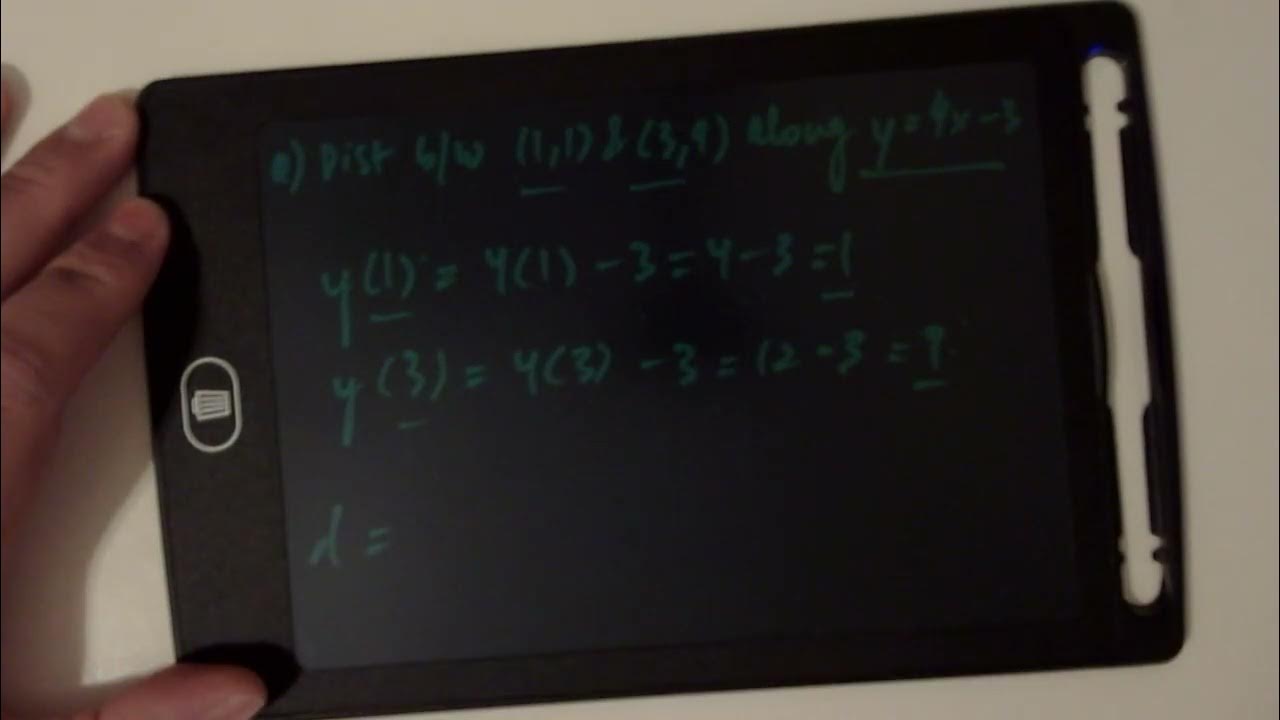 a) Dist b/w (1,1) & (3,9) along y=4x-3
y(1) = 4(1) -3=4-3=1
y(3) = 4(3) -3=12-3=9
d =